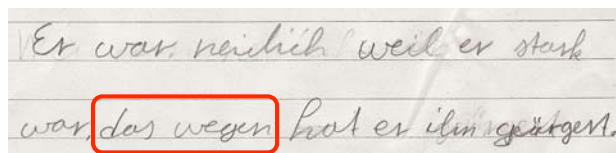 Er war neidich weil er stark
war, das wegen hat er ihn geärgert.